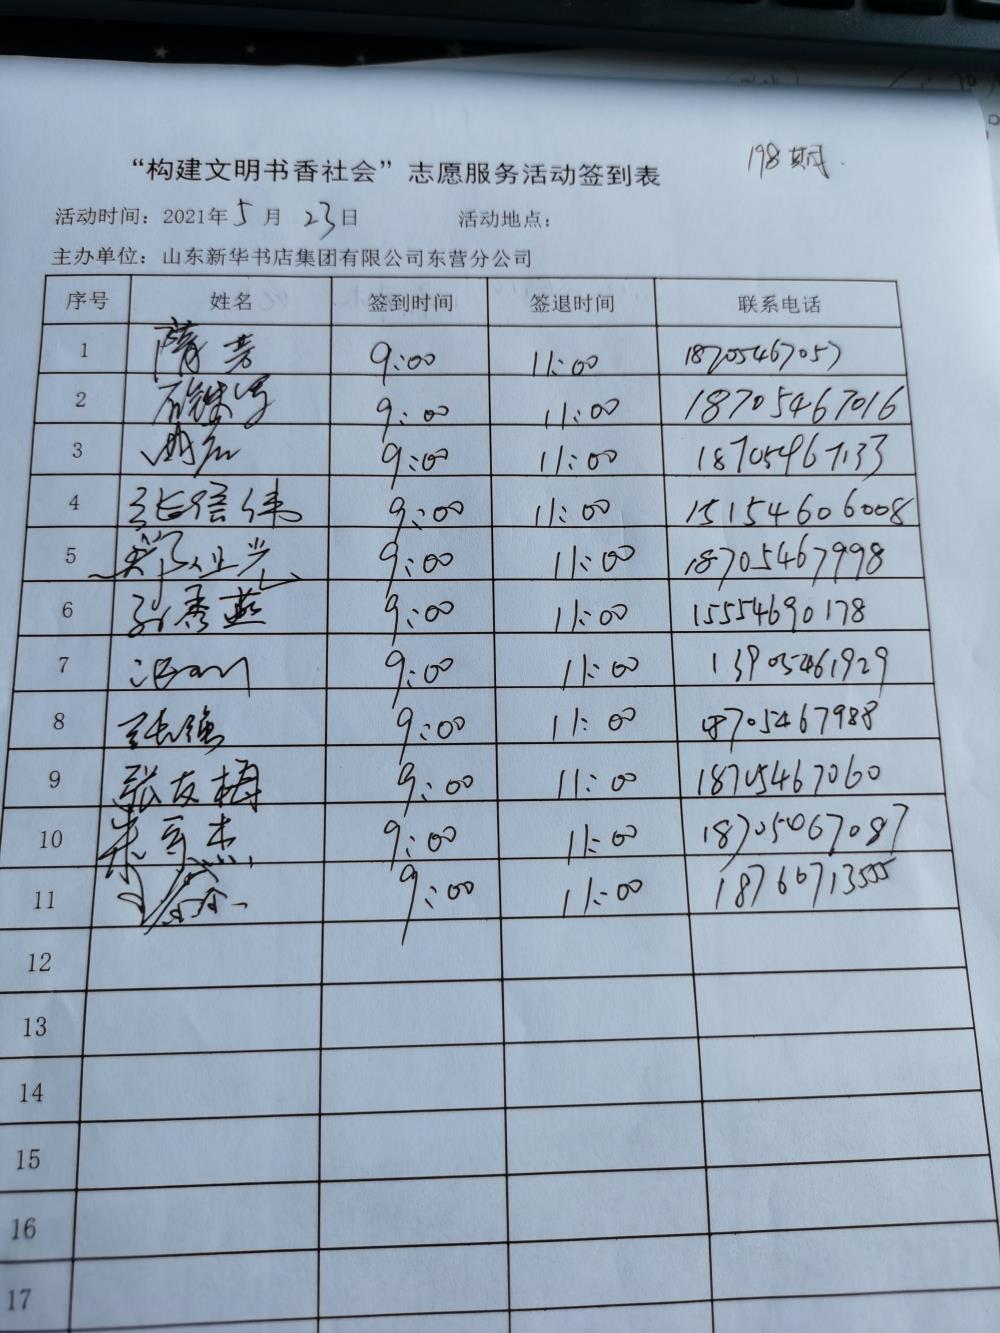 “构建文明书香社会”志愿服务活动签到表 198期
活动时间：2021年5月23日 活动地点：
主办单位：山东新华书店集团有限公司东营分公司
序号 姓名 签到时间 签退时间 联系电话
1 9:00 11:00 18705467057
2 9:00 11:00 18705467016
3 9:00 11:00 18705467133
4 张信伟 9:00 11:00 15154606008
5 9:00 11:00 18705467998
6 孙秀燕 9:00 11:00 15554690178
7 9:00 11:00 13905461929
8 张强 9:00 11:00 18705467988
9 张友梅 9:00 11:00 18705467060
10 9:00 11:00 18705067087
11 9:00 11:00 18760713555
12
13
14
15
16
17